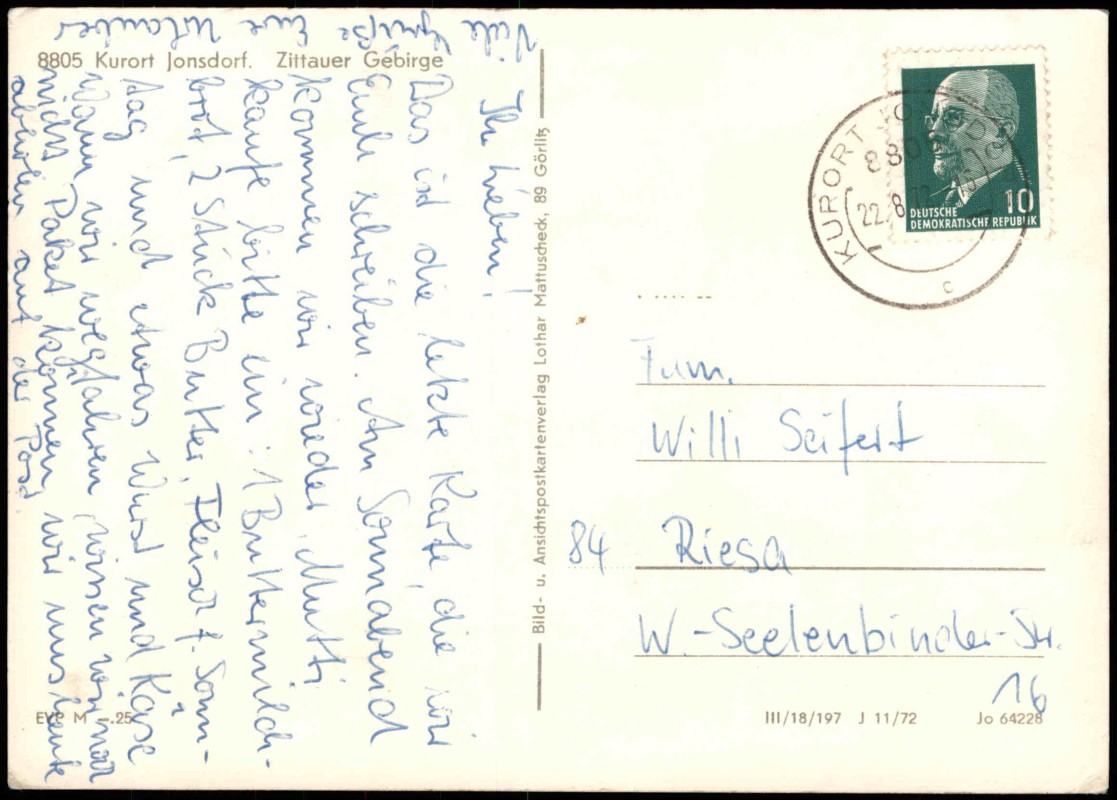 8805 Kurort Jonsdorf. Zittauer Gebirge
Ihr Lieben!
Das ist die letzte Karte, die wir
Euch schreiben. Am Sonnabend
kommen wir wieder. Mutti
kaufe bitte ein: 1 Buttermilch-
brot, 2 Stück Butter, Fleisch f. Sonn-
tag und etwas Wurst und Käse
Wann wir wegfahren wissen wir noch
nicht. Paket können wir uns heute
abholen auf der Post.
Viele Grüße Eure Urlauber
EVP M -.25
Bild- u. Ansichtspostkartenverlag Lothar Mattuscheck, 89 Görlitz
KURORT JONSDORF
8805
22.8.
c
10
DEUTSCHE
DEMOKRATISCHE REPUBLIK
Fam.
Willi Seifert
84 Riesa
W.-Seelenbinder-Str.
16
III/18/197 J 11/72 Jo 64228